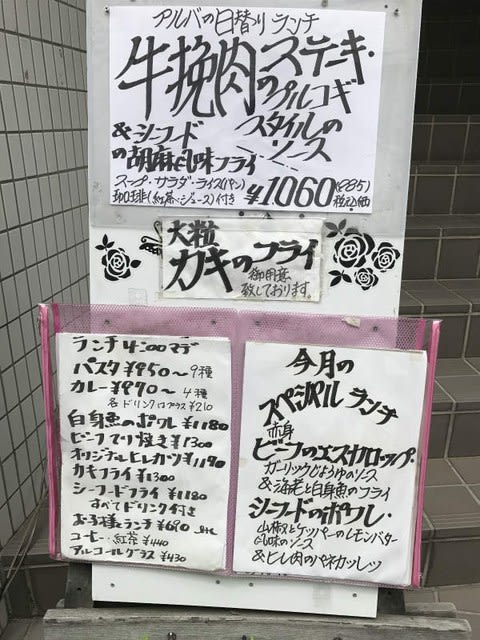 アルバの日替りランチ
牛挽肉のステーキ・
プルコギ
スタイルの
ソース
&シーフード
の胡麻だし味フライ
スープ・サラダ・ライス(パン)
珈琲(紅茶・ジュース)付き
¥1060(885)
税込価
大粒
カキのフライ
御用意
致しております。
ランチ4:00マデ
パスタ¥950〜9種
カレー¥970〜4種
各ドリンクはプラス¥210
白身魚のポワレ¥1180
ビーフすり焼き¥1300
オリジナルヒレカツ¥1190
カキフライ¥1300
シーフードフライ¥1180
すべてドリンク付き
お子様ランチ¥690
コーヒー・紅茶¥440
アルコールグラス¥430
今月の
スペシャルランチ
赤身
ビーフのエスカロップ・
ガーリックじょうゆのソース
&海老と白身魚のフライ
シーフードのポワレ・
山椒とケッパーのレモンバター
だし味のソース
&ヒレ肉のパネカッレツ